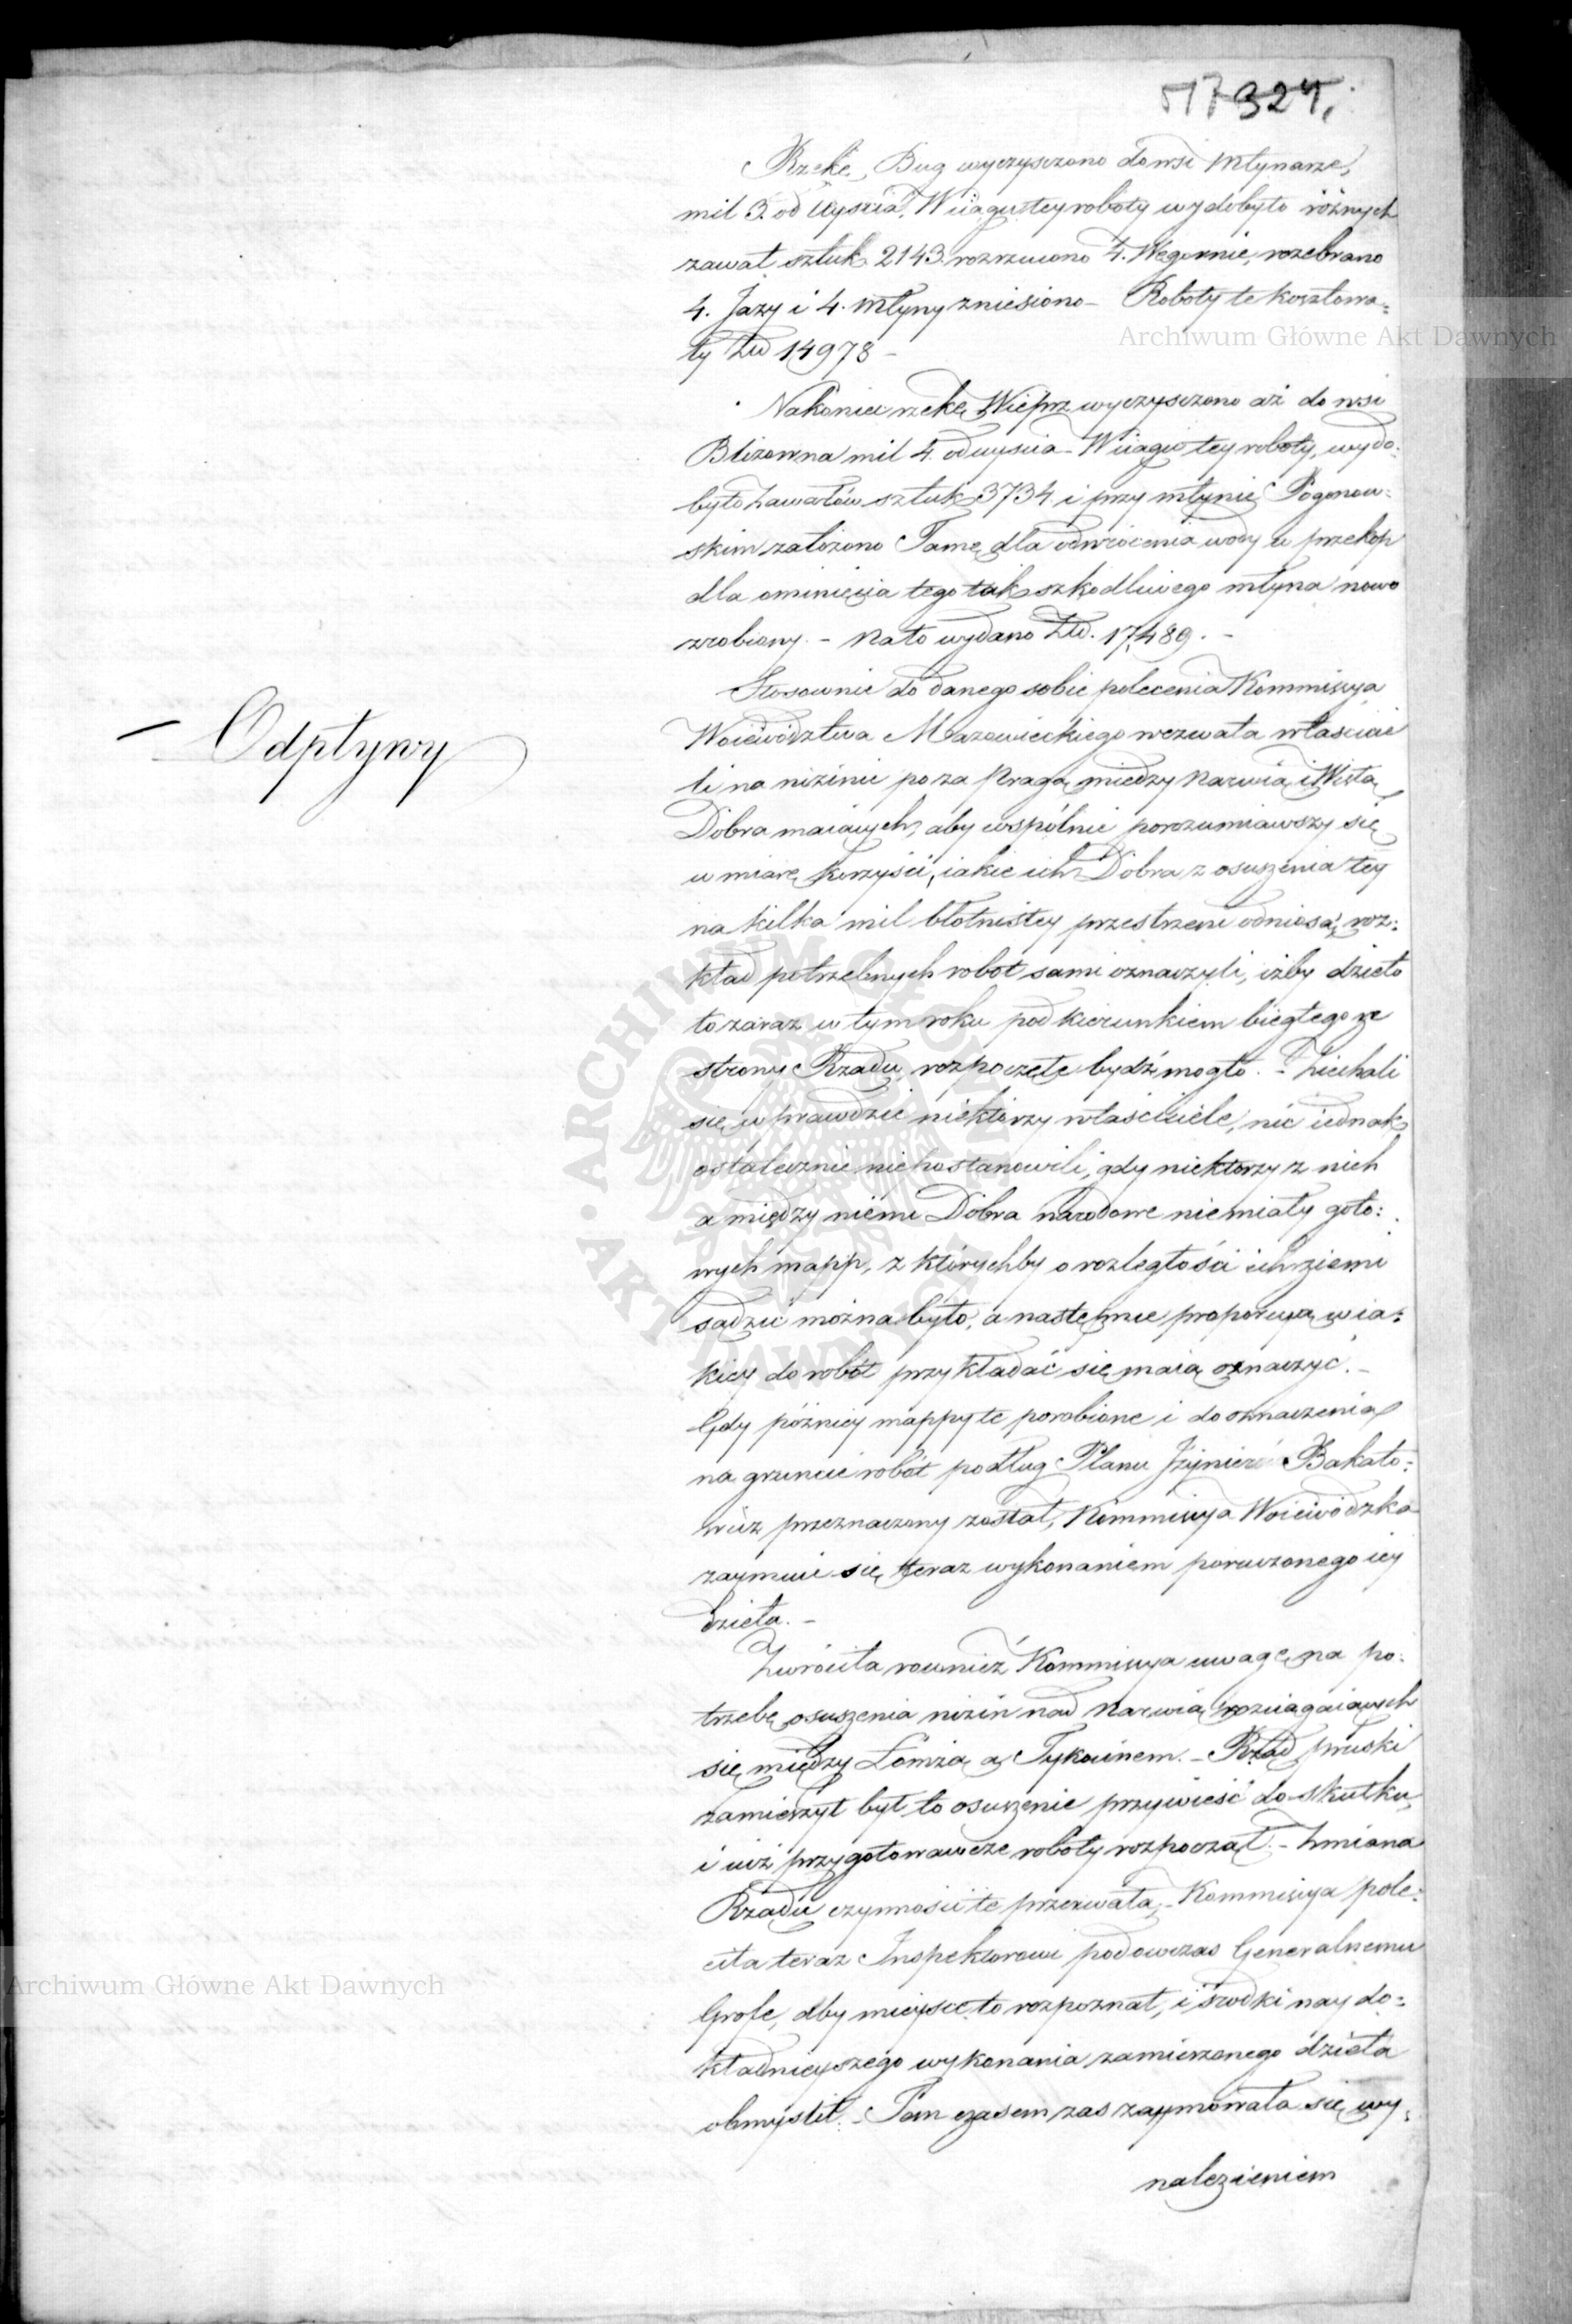 517 324.
Rzekę Bug wyczyszczono do wsi Młynarze,
mil 3. od Uyścia, W ciągu tey roboty wydobyto różnych
zawał sztuk 2143. rozrzucono 4. Węgornie, rozebrano
4. Jazy i 4. Młyny zniesiono – Roboty te kosztowa=
ły Złp 14978 –
Nakoniec rzekę Wieprz wyczyszczono aż do wsi
Blizowna mil 4. od uyscia – W ciągu tey roboty, wydo=
byto zawałów sztuk 3734 i przy młynie Pogonow=
skim założono Tamę dla odwrócenia wody w przekop
dla ominięcia tego tak szkodliwego młyna nowo
zrobiony. – Na to wydano Złp. 17,489. –
– Odpływy
Stosownie do danego sobie polecenia Kommissya
Woiewództwa Mazowieckiego wezwała właścicie
li na nizinie po za Pragą między Narwią i Wisłą
Dobra maiących, aby wspólnie porozumiawszy się
w miarę korzyści, iakie ich Dobra z osuszenia tey
na kilka mil błotnistey przestrzeni odniosą, roz=
kład potrzebnych robot sami oznaczyli, iżby dzieło
to zaraz w tym roku pod kierunkiem biegłego ze
strony Rządu rozpoczęte bydź mogło. – Ziechali
się w prawdzie niektórzy właściciele, nic iednak
ostatecznie niepostanowili, gdy niektorzy z nich
a między niemi Dobra narodowe niemiały goto=
wych mapp, z którychby o rozległości ich ziemi
sądzić można było, a następnie proporcyą w ia=
kiey do robót przykładać się maią oznaczyc. –
Gdy pózniey mappy te porobione i do oznaczenia
na gruncie robót podług Planu Jżynier Bakało=
wicz przeznaczony został, Kommissya Woiewódzka
zaymuie się teraz wykonaniem poruczonego iey
dzieła. –
Zwróciła rownież Kommissya uwagę na po=
trzebę osuszenia nizin nad Narwią rozciągaiących
się między Łomżą a Tykocinem. – Rząd pruski
zamierzył był to osuszenie przywieść do skutku,
i iuż przygotowawcze roboty rozpoczął. – Zmiana
Rządu czynności te przerwała, – Kommissya pole=
ciła teraz Inspektorowi podowczas Generalnemu
Grofe, aby mieysce to rozpoznał, i środki nay do=
kładnieyszego wykonania zamierzonego dzieła
obmyślił. – Tam czasem zas zaymowała się wy=
nalezieniem
Archiwum Główne Akt Dawnych
Archiwum Główne Akt Dawnych
ARCHIWUM GŁÓWNE AKT DAWNYCH